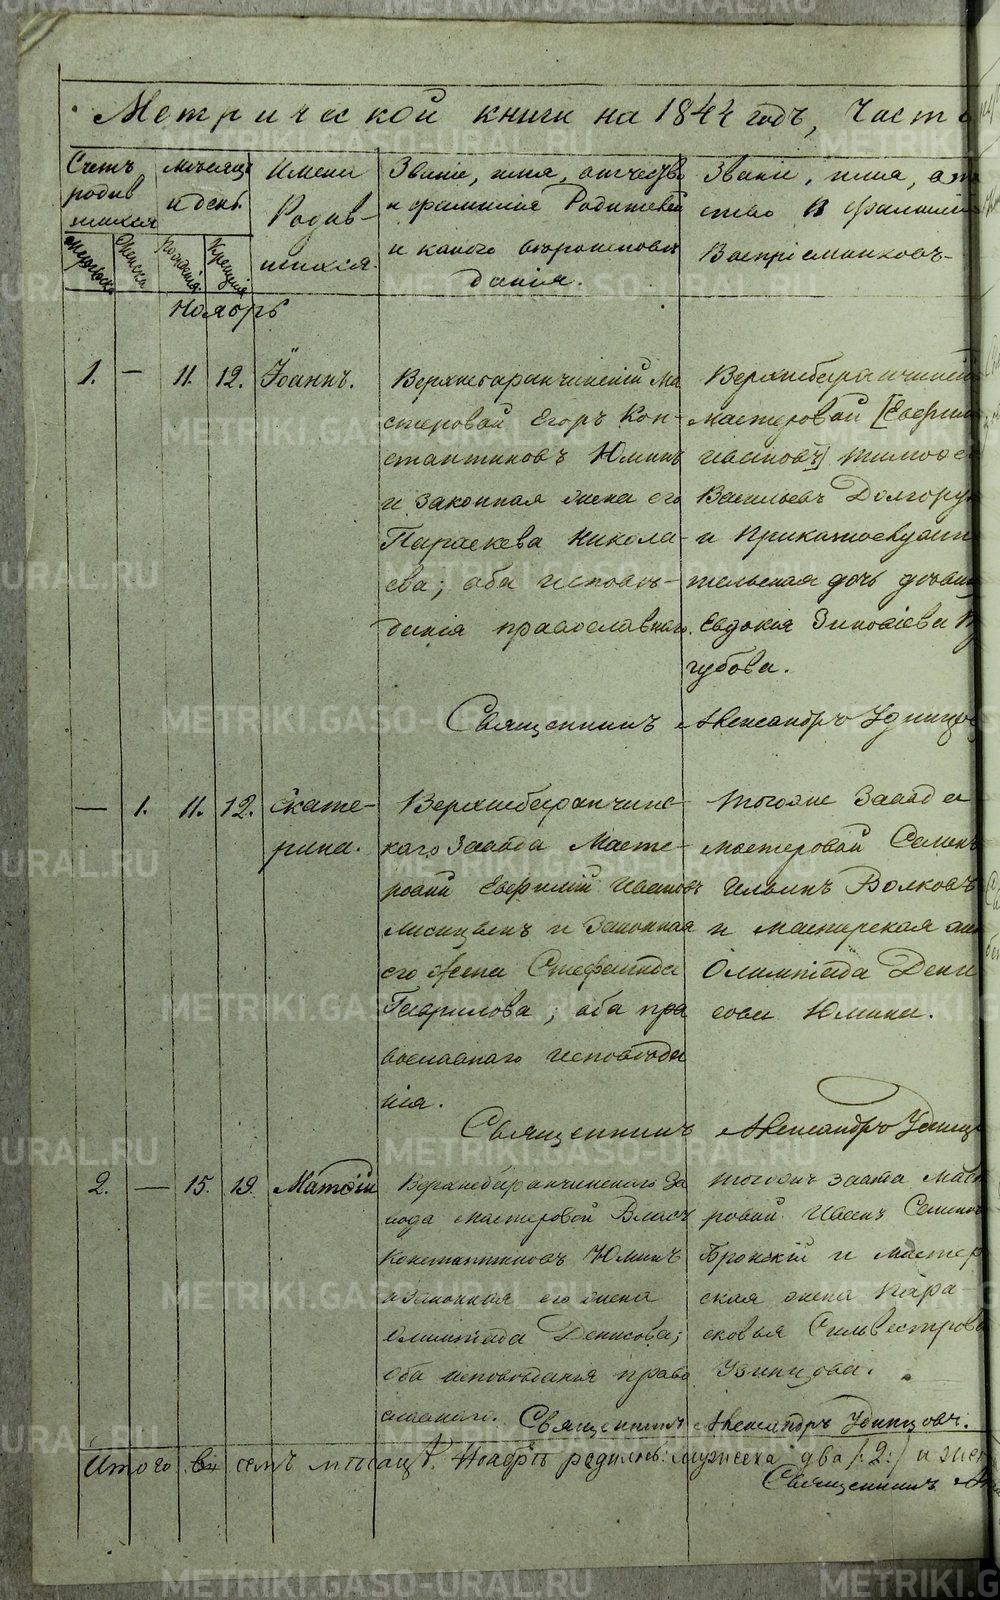 Метрической книги на 1844 годъ, Часть
Счетъ родив шихся
Мужеска
Женска
Месяцъ и день
Рожденія
Крещенія
Имена Родив- шихся.
Званіе, имя, отчество и фамилія Родителей и какого вероисповѣ данія.
Званіе, имя, отче ство и фамилія Воспріемниковъ-
Ноябрь
1. — 11. 12. Іоаннъ.
Верхнебаранчинскій Ма
стеровой Егоръ Кон-
стантиновъ Юминъ
и законная жена его
Параскева Никола-
ева; оба исповѣ-
данія православнаго.
Верхнебаранчинскій
мастеровой [Евфимі
Ивановъ] Тимофе
Васильевъ Долгорук
и
тельская дочь дѣвиц
Евдокія Зиновіева
губова.
Священникъ Александръ Удинцов
— 1. 11. 12. Екате-
рина.
Верхнебаранчинс-
каго Завода Масте-
ровой Евфимій Ивановъ
Лисицынъ и Законная
его Жена Стефанида
Гаврилова; оба пра
вославнаго исповѣда
нія.
тогоже Завода
мастеровой Семенъ
Ильинъ Волковъ
и мастерская жен
Олимпіада Дени
сова Юмина.
Священникъ Александръ Удинцо
2. — 15. 19. Матѳій
Верхнебаранчинскаго За
вода мастеровой Власъ
Константиновъ Юминъ
и Законная его жена
Олимпіада Денисова;
оба исповѣданія право
славнаго.
тогожъ завода Маст
ровой Иванъ Семенов
Бронскій и мастер
ская жена Пара-
сковья Сильвестрова
Удинцова.
Священникъ Александръ Удинцовъ.
Итого въ семъ мѣсяцѣ Ноябрѣ родилось: мужеска два /:2:/ и жен
Священникъ Ал
METRIKI.GASO-URAL.RU